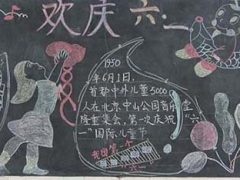 欢庆六一
1950
年6月1日，
首都中外儿童5000
人在北京中山公园音乐堂
隆重集会，第一次庆祝“六
一”国际儿童节
我国第一个
六一